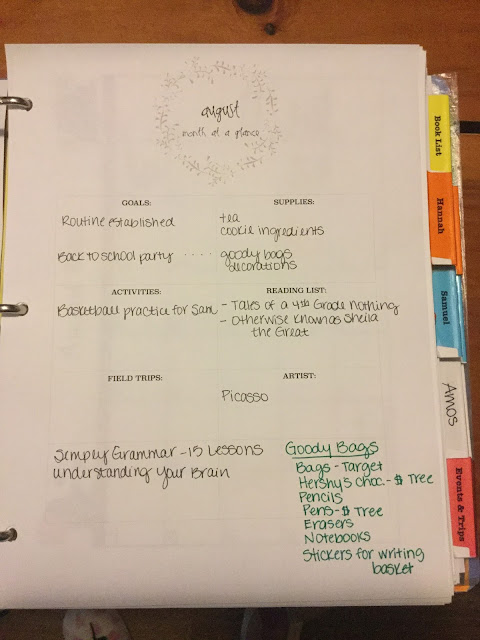 august
month at a glance
GOALS:
Routine established
Back to school party ....
SUPPLIES:
tea
cookie ingredients
goody bags
decorations
ACTIVITIES:
Basketball practice for Sam
READING LIST:
- Tales of a 4th Grade Nothing
- Otherwise Known as Sheila
the Great
FIELD TRIPS:
ARTIST:
Picasso
Simply Grammar - 15 Lessons
Understanding Your Brain
Goody Bags
Bags - Target
Hershy's choc. - $ Tree
Pencils
Pens - $ Tree
Erasers
Notebooks
Stickers for writing
basket
Book List
Hannah
Samuel
Amos
Events & Trips